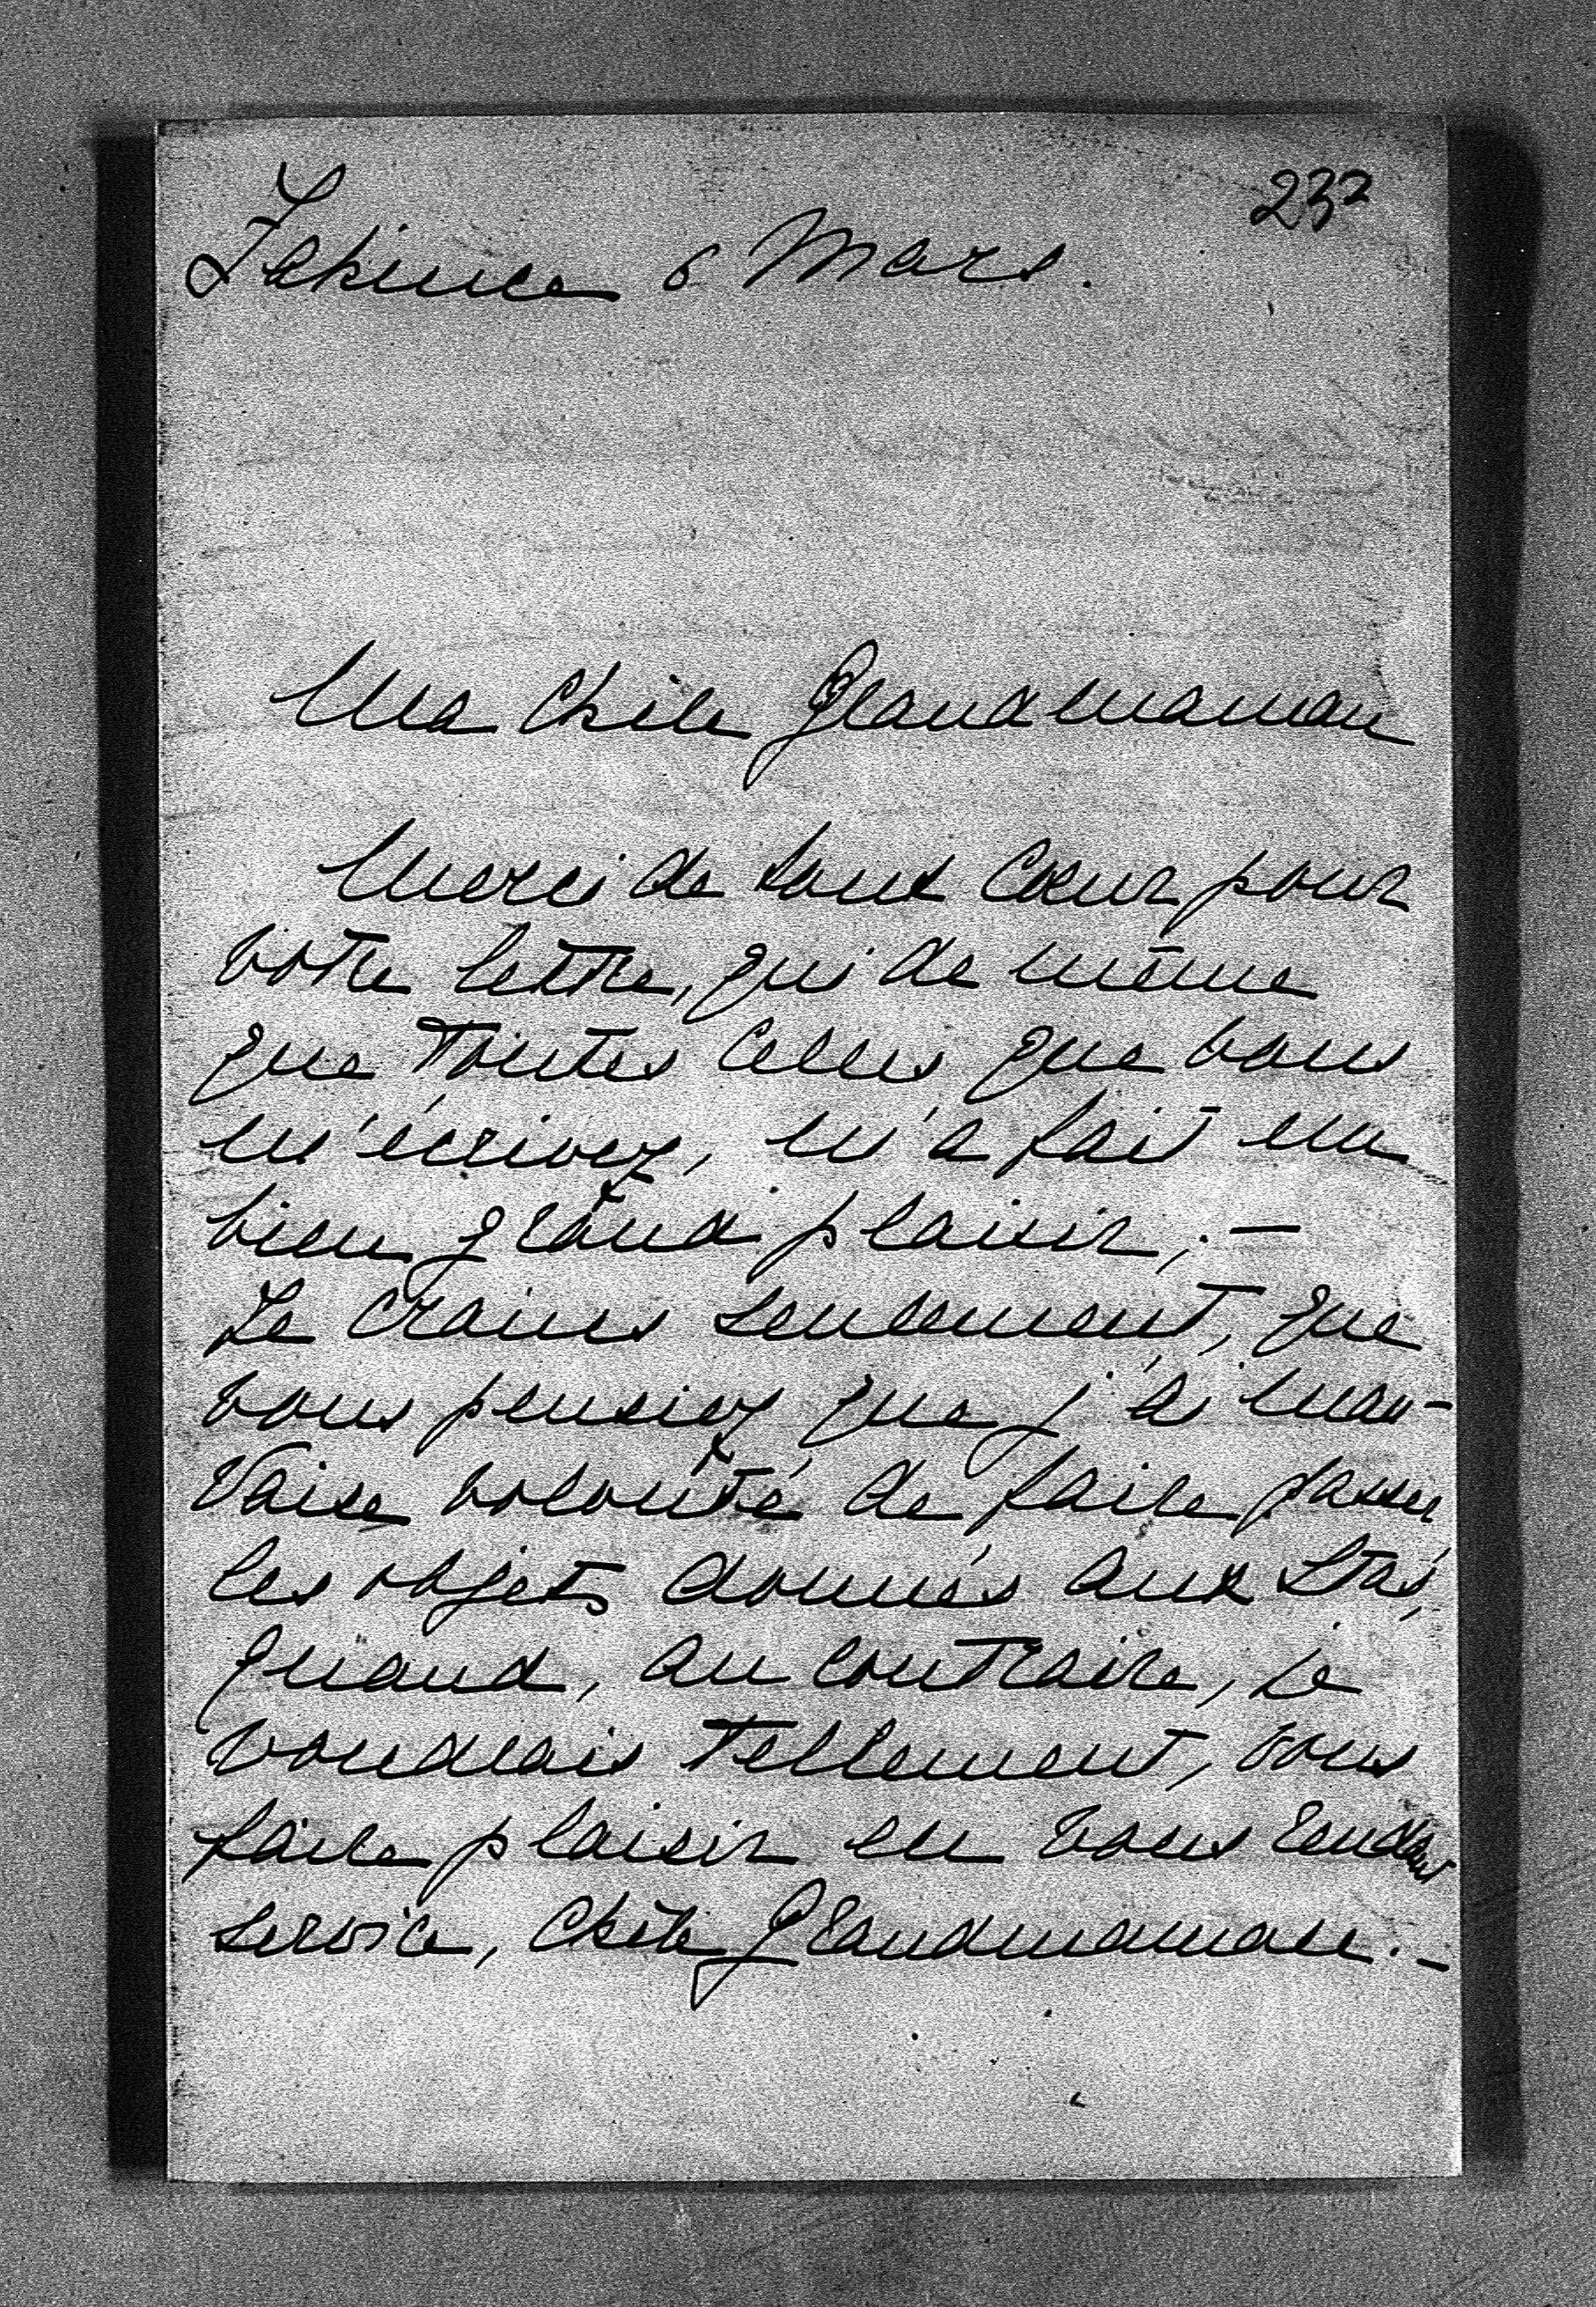 232
6 Mars.
Ma Chère Grandmaman
Merci de tout Cœur pour
votre lettre, qui de même
que toutes celles que vous
m'écrivez, m'a fait un
bien grand plaisir, . —
Je crains seulement, que
vous pensiez que j'ai mau-
vaise volonté de faire passer
les objets donnés aux
quand, au contraire, je
voudrais tellement, vous
faire plaisir en vous rendant
service, Chère Grandmaman. –